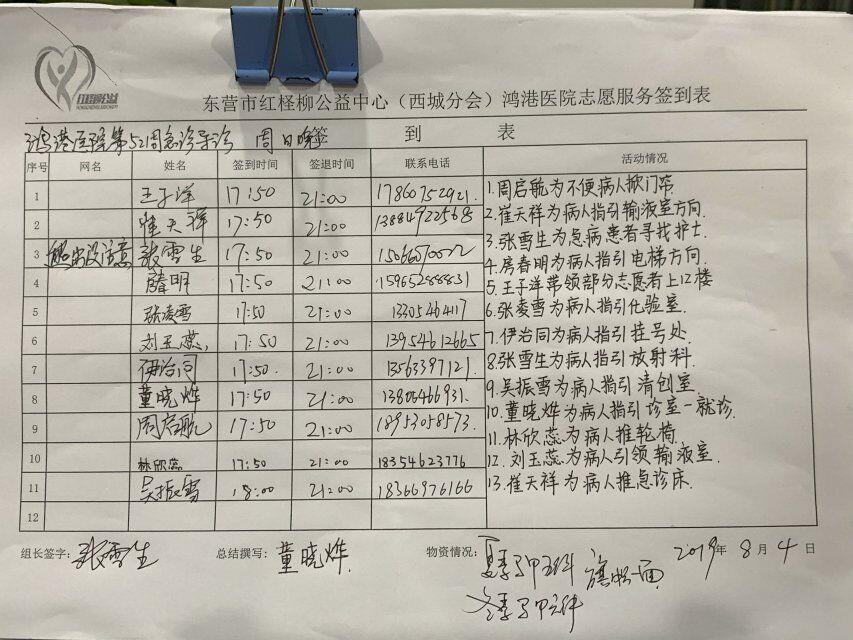 红柽柳公益
东营市红柽柳公益中心（西城分会）鸿港医院志愿服务签到表
鸿港医院第52周急诊导诊 周日晚 签 到 表
序号 网名 姓名 签到时间 签退时间 联系电话 活动情况
1 王子洋 17:50 21:00 17860752921.
2 崔天祥 17:50 21:00 13884922568
3 张雪生 17:50 21:00
4 17:50 21:00 15965288831
5 张凌雪 17:50 21:00
6 刘玉蕊 17:50 21:00 13954612665
7 伊治同 17:50. 21:00 13563397121.
8 董晓烨 17:50 21:00 13805466931.
9 周启航 17:50 21:00 18953058573.
10 林欣蕊 17:50 21:00 18354623776
11 吴振雪 18:00 21:00 18366976166
12
1.周启航为不便病人掀门帘
2.崔天祥为病人指引输液室方向.
3.张雪生为急病患者寻找护士.
4.房春明为病人指引电梯方向.
5.王子洋带领部分志愿者上12楼
6.张凌雪为病人指引化验室.
7.伊治同为病人指引挂号处.
8.张雪生为病人指引放射科.
9.吴振雪为病人指引清创室
10.董晓烨为病人指引诊室一就诊.
11.林欣蕊为病人推轮椅.
12.刘玉蕊为病人引领输液室.
13.崔天祥为病人推急诊床.
组长签字：张雪生 总结撰写：董晓烨. 物资情况： 夏季 2019年8月4日
冬季